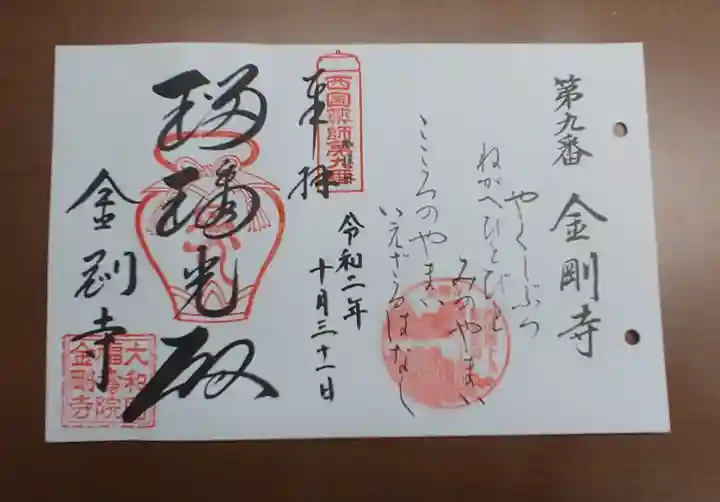 第九番
金剛寺
やくしぶつ
ねがへひとびと
みのやまい
こころのやまい
いえざるはなし
西国薬師第九番
奉拝
令和二年
十月三十一日
瑠璃光殿
金剛寺
大和国
福寿院
金剛寺